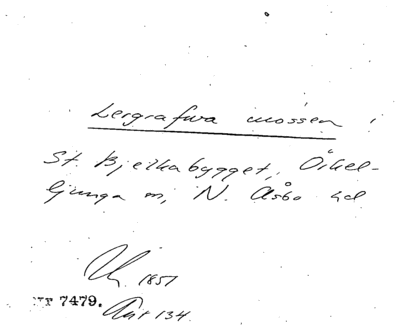 Lergrafva mossen
St. Bjelkabygget, Örkel-
ljunga sn, N. Åsbo hd
1851
Nr 7479.
Akt 134